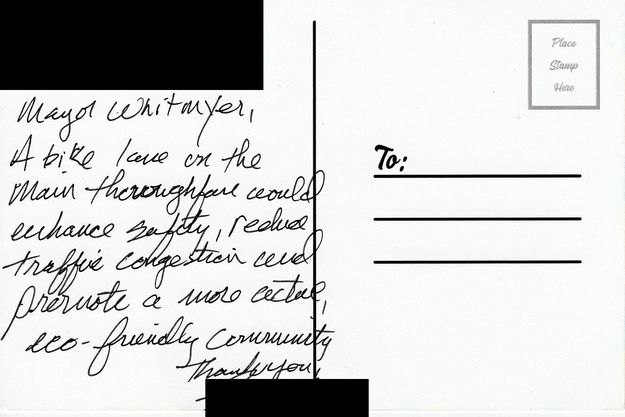 Mayor Whitmyer,
A bike lane on the
main thoroughfare would
enhance safety, reduce
traffic congestion and
promote a more active,
eco-friendly community
Thank you,
Place
Stamp
Here
To: